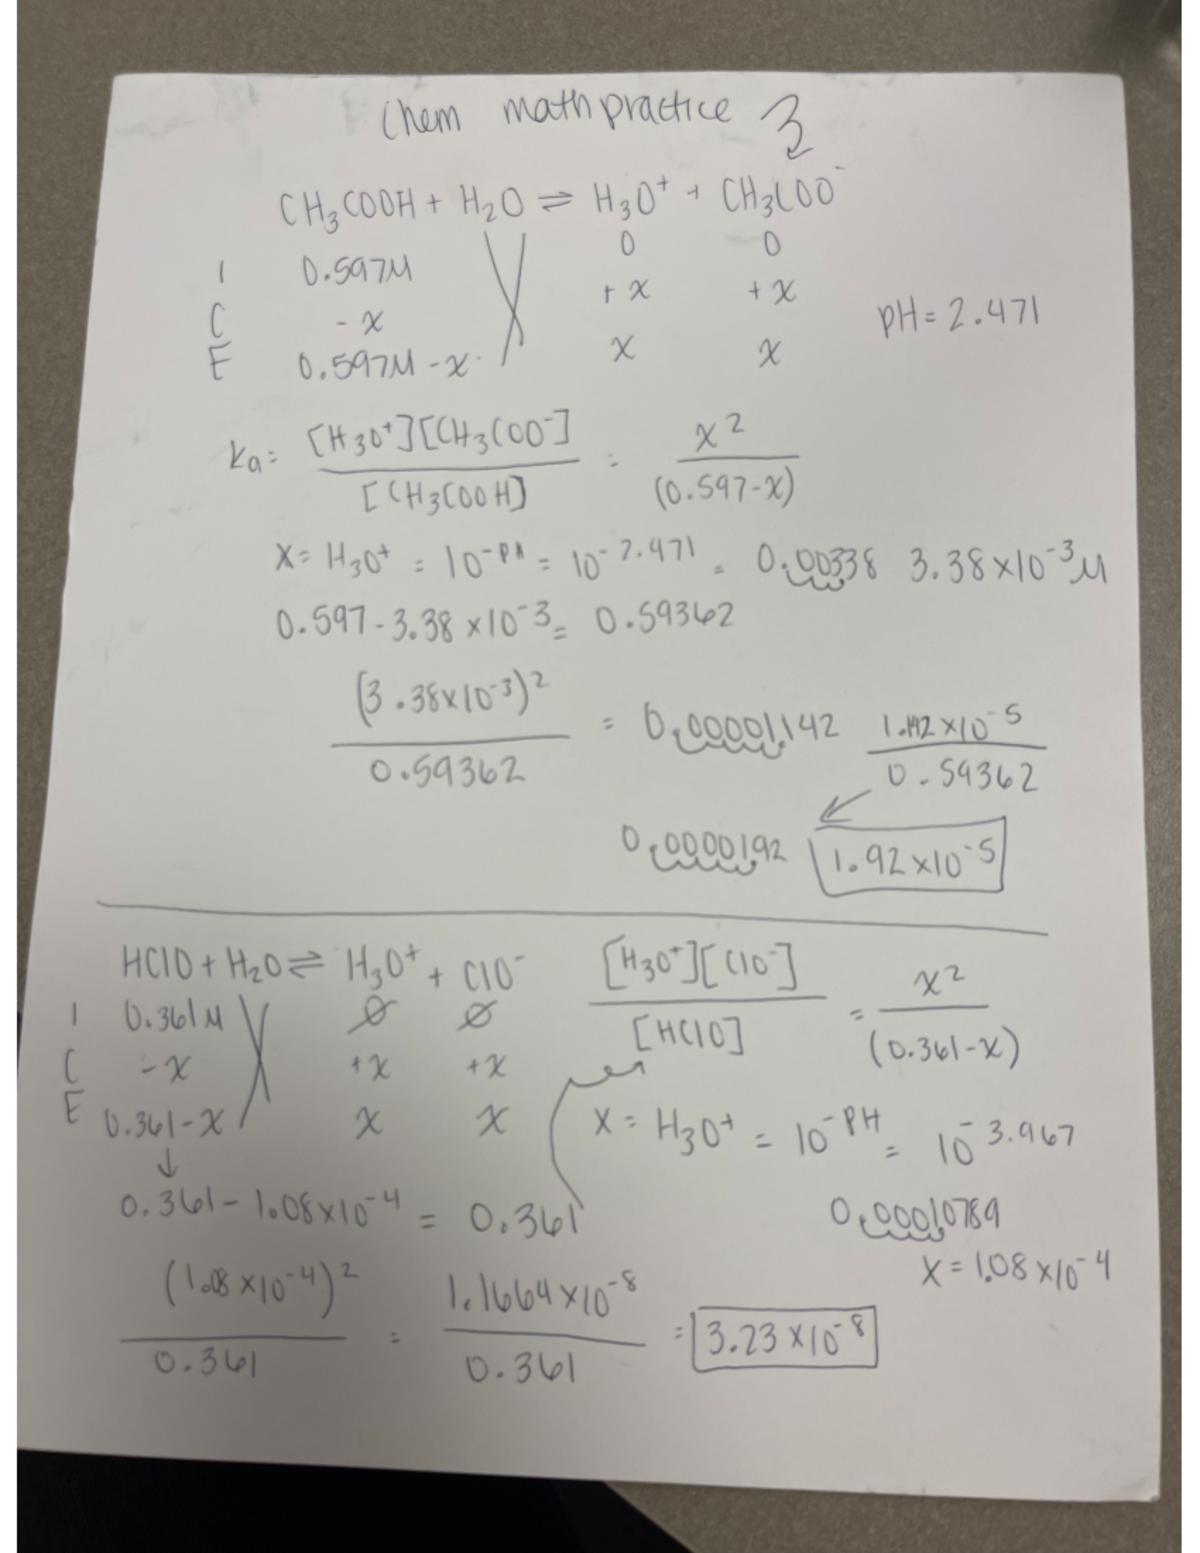 Chem math practice 3
CH₃COOH + H₂O ⇌ H₃O⁺ + CH₃COO⁻
I 0.597M 0 0
C - x + x + x
E 0.597M - x x x
pH = 2.471
Ka = [H₃O⁺][CH₃COO⁻] / [CH₃COOH] = x² / (0.597-x)
X = H₃O⁺ = 10⁻ᵖᴴ = 10⁻²·⁴⁷¹ = 0.00338 3.38x10⁻³M
0.597 - 3.38 x10⁻³ = 0.59362
(3.38x10⁻³)² / 0.59362 = 0.00001142 1.142x10⁻⁵ / 0.59362
0.0000192 1.92x10⁻⁵
HClO + H₂O ⇌ H₃O⁺ + ClO⁻
I 0.361M 0 0
C - x +x +x
E 0.361-x x x
[H₃O⁺][ClO⁻] / [HClO] = x² / (0.361-x)
X = H₃O⁺ = 10⁻ᵖᴴ = 10⁻³·⁹⁶⁷
0.00010789
X = 1.08x10⁻⁴
0.361 - 1.08x10⁻⁴ = 0.361
(1.08x10⁻⁴)² / 0.361 = 1.1664x10⁻⁸ / 0.361 = 3.23x10⁻⁸